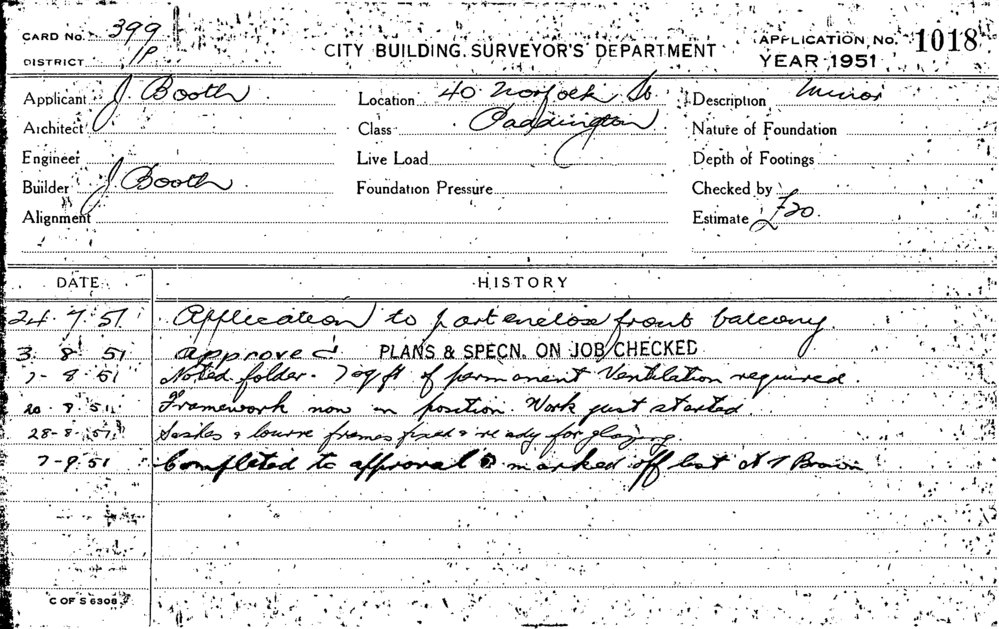 CARD No. 399
DISTRICT P
CITY BUILDING SURVEYOR'S DEPARTMENT
APPLICATION No. 1018
YEAR 1951
Applicant J Booth
Architect
Engineer
Builder J Booth
Alignment
Location 40 Norfolk St
Class Paddington
Live Load
Foundation Pressure
Description Minor
Nature of Foundation
Depth of Footings
Checked by
Estimate £20.
DATE HISTORY
24 7 51 Application to part enclose front balcony
3 8 51 approved PLANS & SPECN. ON JOB CHECKED
7-8 51 Noted folder. 7 sq ft of permanent Ventilation required.
20 8 51 Framework now in position. Work just started
28-8-51 Sashes & louvre frames fixed & ready for glazing
7-9 51 Completed to approval & marked off list Brown
C OF S 6308